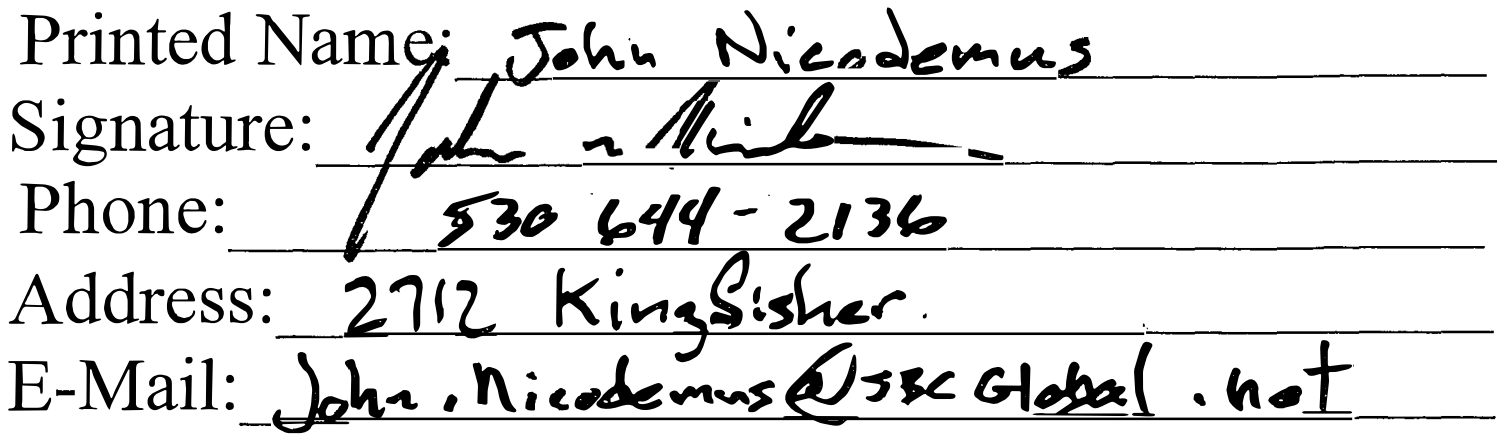 Printed Name: John Nicodemus
Signature: John n Nicodemus
Phone: 530 644-2136
Address: 2712 Kingfisher.
E-Mail: John.Nicodemus@SBCGlobal.net